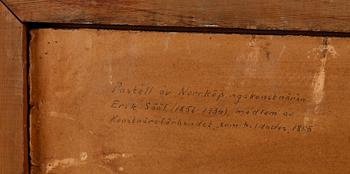 Pastell av Norrköpingskonstnären
Erik Sääf (1856-1934), medlem av
Konstnärsförbundet, som bildades 1886